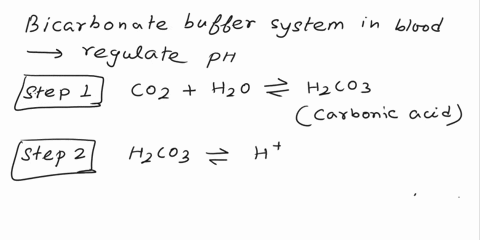 Bicarbonate buffer system in blood
→ regulate pH
Step 1 CO2 + H2O ⇌ H2CO3
(Carbonic acid)
Step 2 H2CO3 ⇌ H+